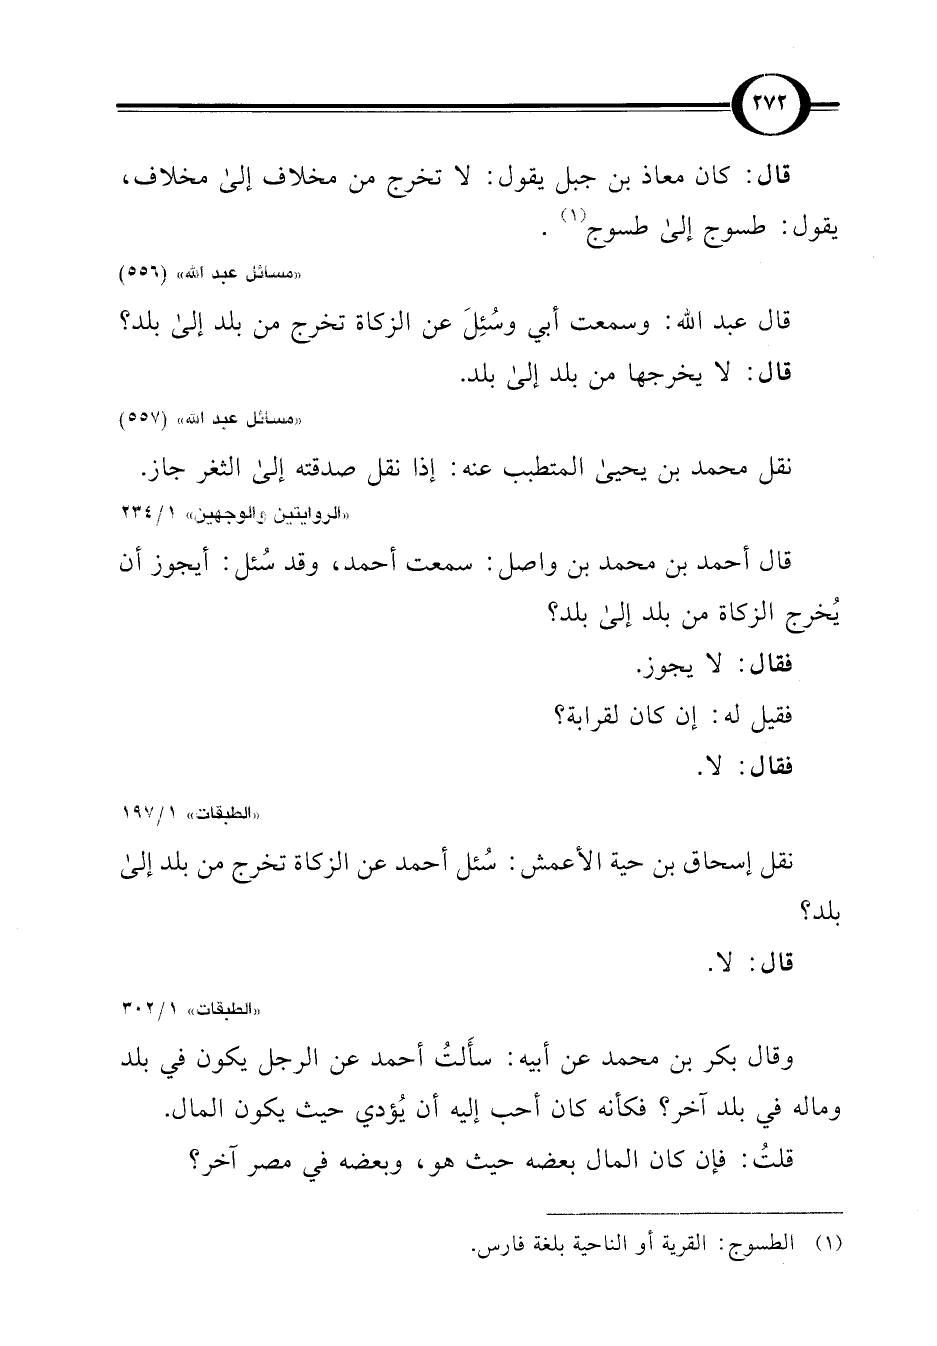 ٢٧٢
قال: كان معاذ بن جبل يقول: لا تخرج من مخلاف إلىٰ مخلاف،
يقول: طسوج إلىٰ طسوج(١) .
«مسائل عبد الله» (٥٥٦)
قال عبد الله: وسمعت أبي وسُئِلَ عن الزكاة تخرج من بلد إلىٰ بلد؟
قال: لا يخرجها من بلد إلىٰ بلد.
«مسائل عبد الله» (٥٥٧)
نقل محمد بن يحيىٰ المتطبب عنه: إذا نقل صدقته إلىٰ الثغر جاز.
«الروايتين والوجهين» ١/ ٢٣٤
قال أحمد بن محمد بن واصل: سمعت أحمد، وقد سُئل: أيجوز أن
يُخرج الزكاة من بلد إلىٰ بلد؟
فقال: لا يجوز.
فقيل له: إن كان لقرابة؟
فقال: لا.
«الطبقات» ١/ ١٩٧
نقل إسحاق بن حية الأعمش: سُئل أحمد عن الزكاة تخرج من بلد إلىٰ
بلد؟
قال: لا.
«الطبقات» ١/ ٣٠٢
وقال بكر بن محمد عن أبيه: سأَلتُ أحمد عن الرجل يكون في بلد
وماله في بلد آخر؟ فكأنه كان أحب إليه أن يُؤدي حيث يكون المال.
قلتُ: فإن كان المال بعضه حيث هو، وبعضه في مصر آخر؟
(١) الطسوج: القرية أو الناحية بلغة فارس.